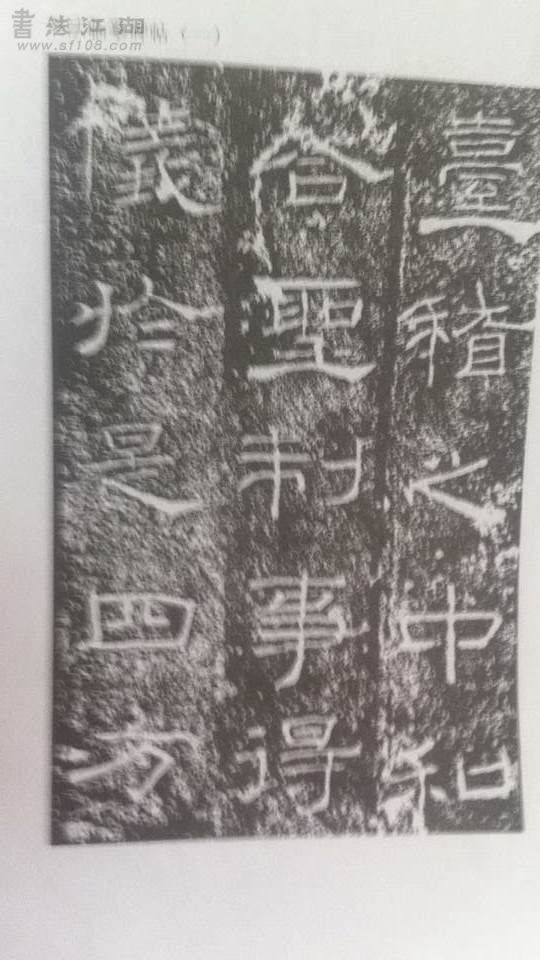 書法江湖
www.sf108.com
帖（一）
臺稽之中和
合聖制事得
儀於是四方